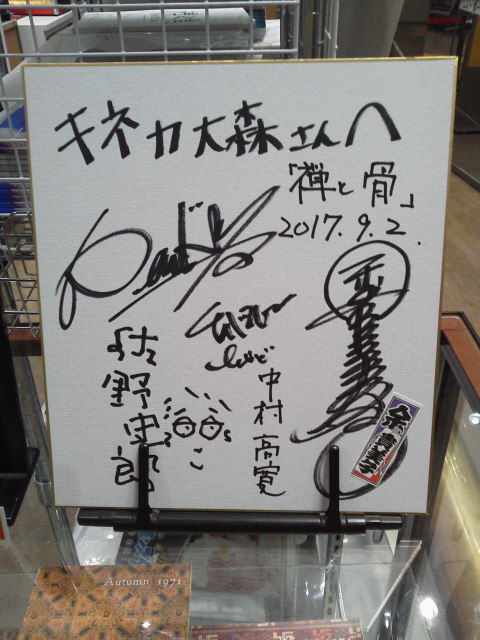 キネカ大森さんへ
「禅と骨」
2017.9.2.
佐野史郎
中村高寛
余貴美子
Autumn 1971